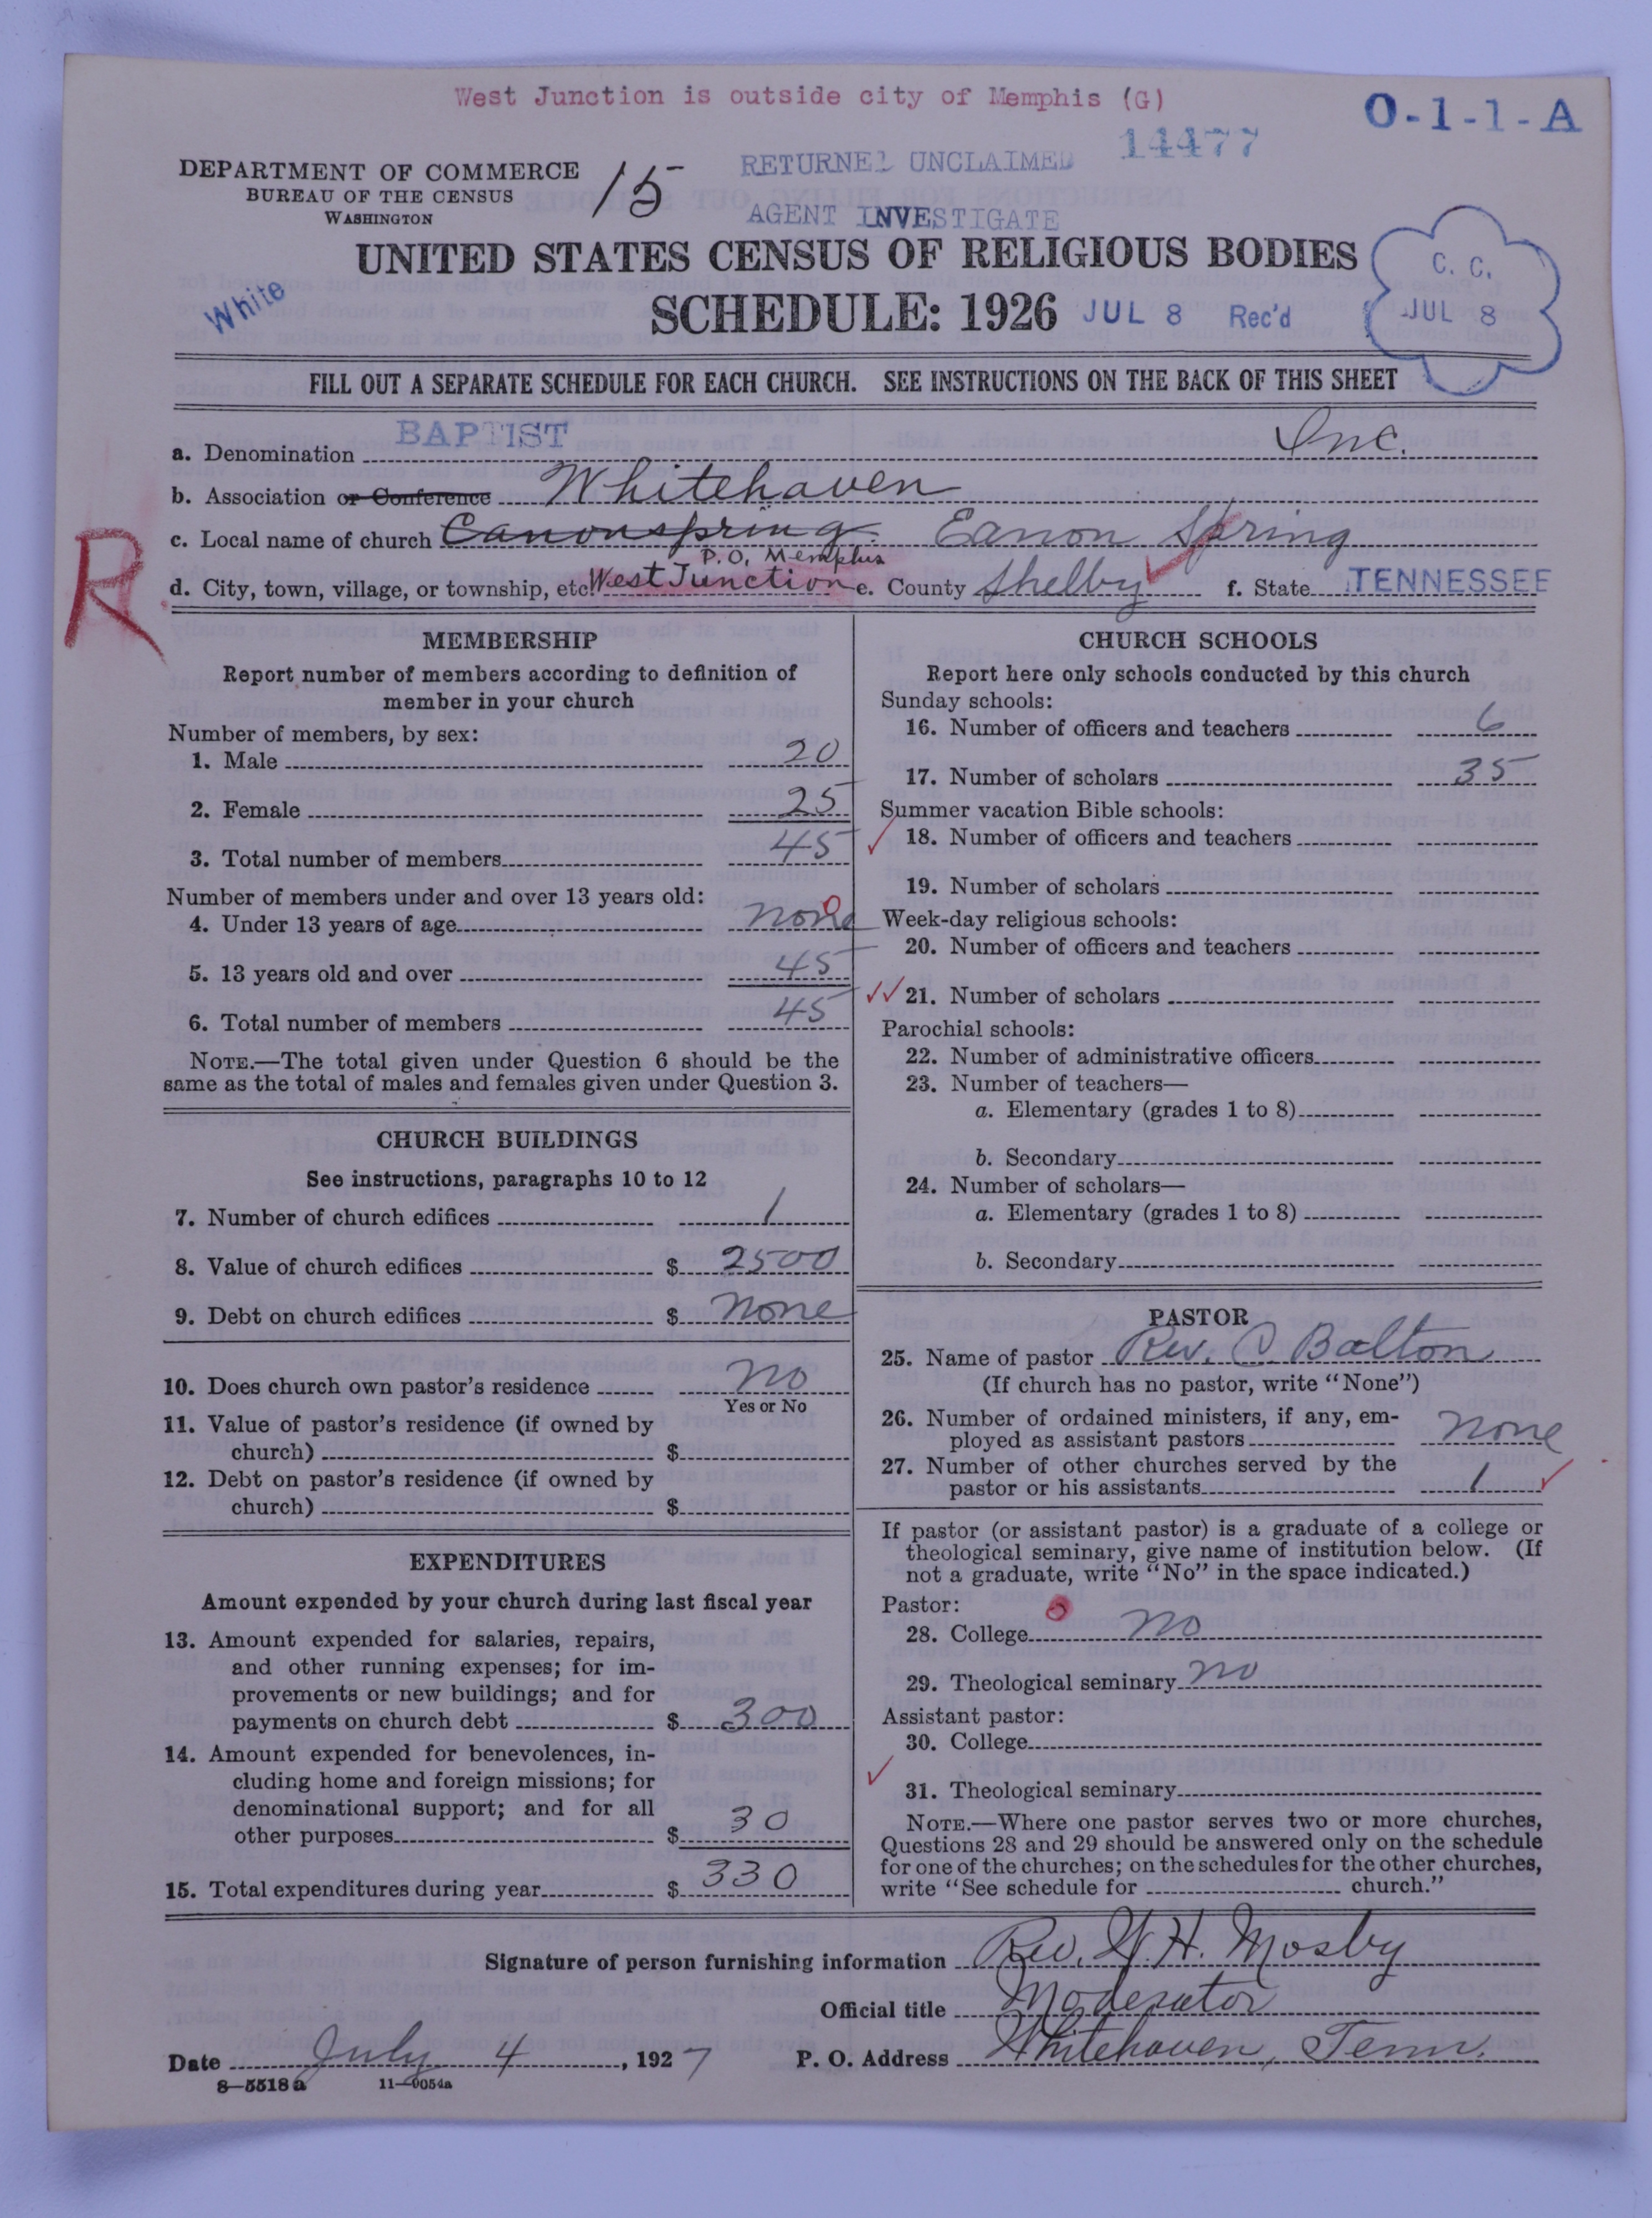 West Junction is outside city of Memphis (G)
O-1-1-A
14477
DEPARTMENT OF COMMERCE
BUREAU OF THE CENSUS
WASHINGTON
15
RETURNED UNCLAIMED
AGENT INVESTIGATE
UNITED STATES CENSUS OF RELIGIOUS BODIES
White
SCHEDULE: 1926
JUL 8 Rec'd
C. C.
JUL 8
FILL OUT A SEPARATE SCHEDULE FOR EACH CHURCH. SEE INSTRUCTIONS ON THE BACK OF THIS SHEET
a. Denomination BAPTIST Inc.
b. Association or Conference Whitehaven
c. Local name of church Canonspring Eanon Spring
P.O. Memphis
d. City, town, village, or township, etc. West Junction e. County Shelby f. State TENNESSEE
R
MEMBERSHIP
Report number of members according to definition of
member in your church
Number of members, by sex:
1. Male 20
2. Female 25
3. Total number of members 45
Number of members under and over 13 years old:
4. Under 13 years of age none
5. 13 years old and over 45
6. Total number of members 45
NOTE.—The total given under Question 6 should be the
same as the total of males and females given under Question 3.
CHURCH BUILDINGS
See instructions, paragraphs 10 to 12
7. Number of church edifices 1
8. Value of church edifices $ 2500
9. Debt on church edifices $ none
10. Does church own pastor's residence no
Yes or No
11. Value of pastor's residence (if owned by
church) $
12. Debt on pastor's residence (if owned by
church) $
EXPENDITURES
Amount expended by your church during last fiscal year
13. Amount expended for salaries, repairs,
and other running expenses; for im-
provements or new buildings; and for
payments on church debt $ 300
14. Amount expended for benevolences, in-
cluding home and foreign missions; for
denominational support; and for all
other purposes $ 30
15. Total expenditures during year $ 330
CHURCH SCHOOLS
Report here only schools conducted by this church
Sunday schools:
16. Number of officers and teachers 6
17. Number of scholars 35
Summer vacation Bible schools:
18. Number of officers and teachers
19. Number of scholars
Week-day religious schools:
20. Number of officers and teachers
21. Number of scholars
Parochial schools:
22. Number of administrative officers
23. Number of teachers—
a. Elementary (grades 1 to 8)
b. Secondary
24. Number of scholars—
a. Elementary (grades 1 to 8)
b. Secondary
PASTOR
25. Name of pastor Rev. C. Balton
(If church has no pastor, write "None")
26. Number of ordained ministers, if any, em-
ployed as assistant pastors none
27. Number of other churches served by the
pastor or his assistants 1
If pastor (or assistant pastor) is a graduate of a college or
theological seminary, give name of institution below. (If
not a graduate, write "No" in the space indicated.)
Pastor:
28. College no
29. Theological seminary no
Assistant pastor:
30. College
31. Theological seminary
NOTE.—Where one pastor serves two or more churches,
Questions 28 and 29 should be answered only on the schedule
for one of the churches; on the schedules for the other churches,
write "See schedule for church."
Signature of person furnishing information Rev. H. Mosby
Official title Moderator
Date July 4, 1927 P. O. Address Whitehaven, Tenn.
8—5518 a 11—9054a